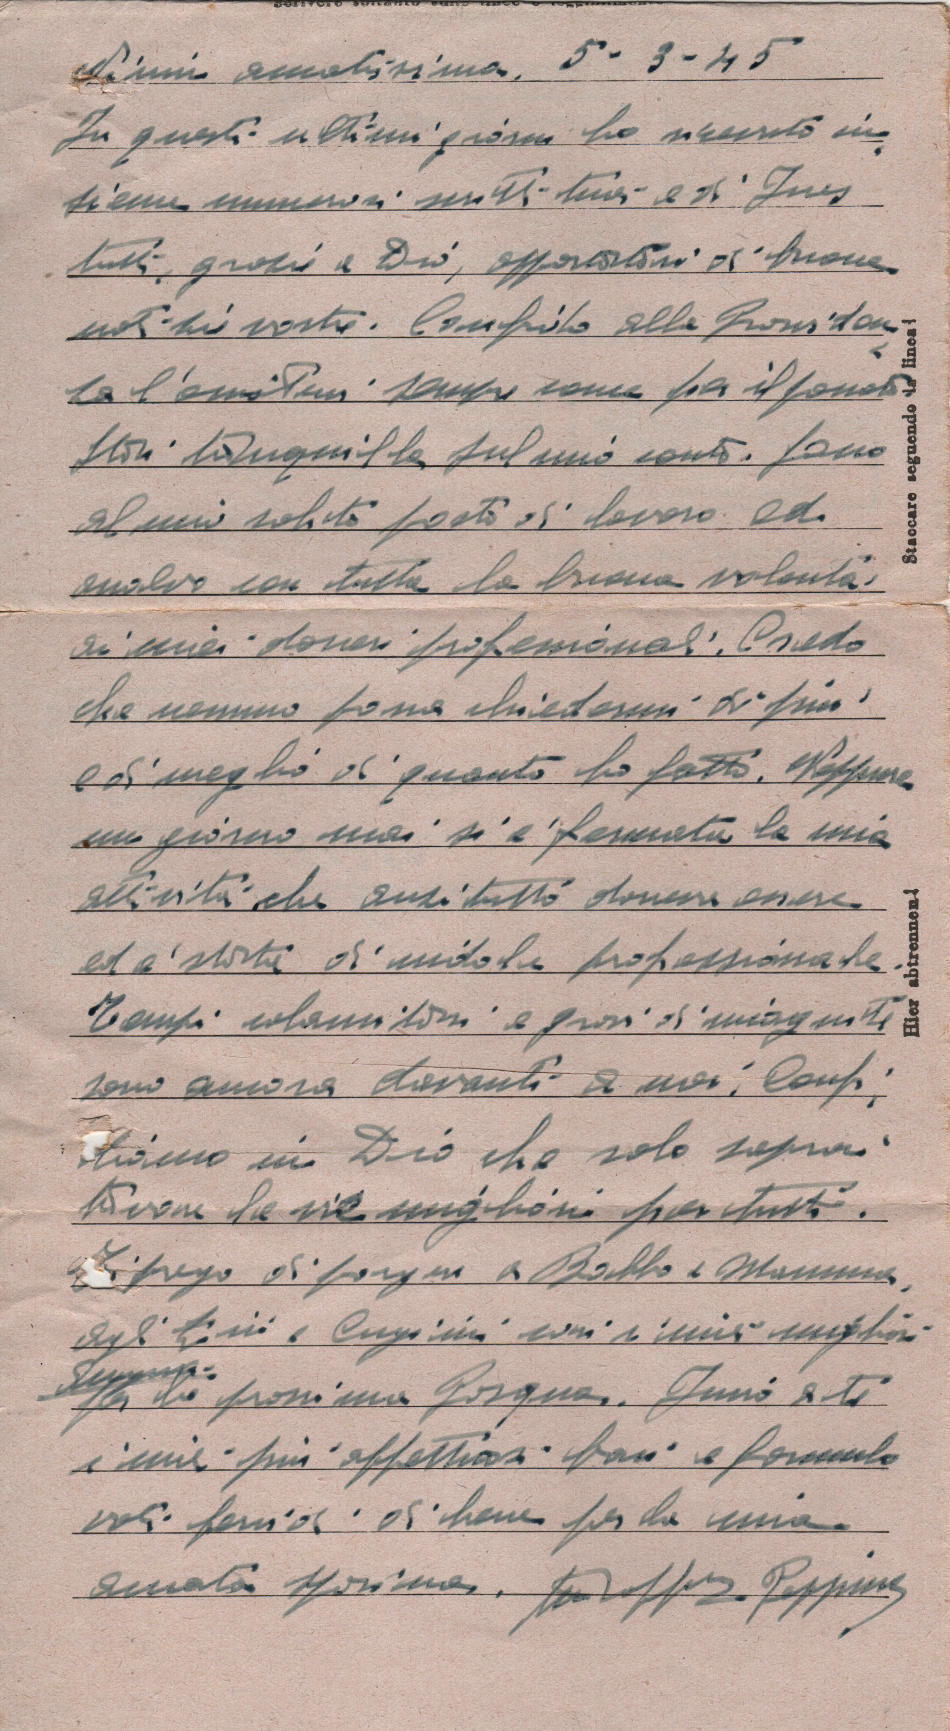 Scrivere soltanto sulle linee e leggibilmente
Nini amatissima. 5-3-45
In questi ultimi giorni ho ricevuto in-
sieme numerosi scritti tuoi e di Ines
tutti, grazie a Dio, apportatori di buone
notizie vostre. Confido alla Provviden-
za l'aiutarvi sempre come per il passato
Stai tranquilla sul mio conto. Sono
al mio solito posto di lavoro ed
assolvo con tutta la buona volontà
ai miei doveri professionali. Credo
che nessuno possa chiedermi di più
e di meglio di quanto ho fatto. Neppure
un giorno mai si è fermata la mia
attività che anzitutto doveva essere
ed è stata di indole professionale.
Tempi calamitosi e gravi di incognite
sono ancora davanti a noi. Confi-
diamo in Dio che solo saprà
trovare le vie migliori per tutti.
Ti prego di porgere a Babbo e Mamma,
agli Zii e Cugini cari i miei migliori
auguri
per la prossima Pasqua. Invio a te
i miei più affettuosi baci e formulo
voti fervidi di bene per la mia
amata sposina. Peppino
Staccare seguendo la linea!
Hier abtrennen!